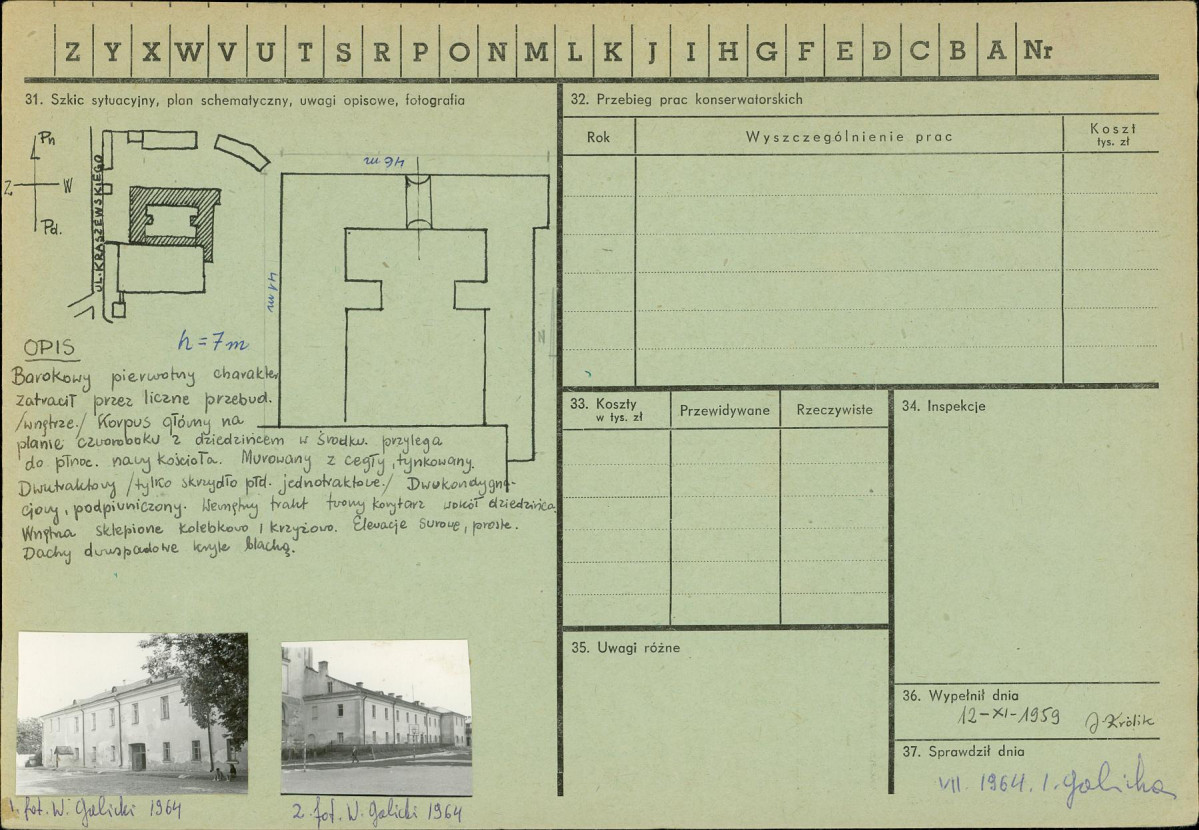 Z Y X W V U T S R P O N M L K J I H G F E D C B A Nr
31. Szkic sytuacyjny, plan schematyczny, uwagi opisowe, fotografia
Pn
Z W
Pd.
UL. KRASZEWSKIEGO
46 m
41 m
h = 7 m
OPIS
Barokowy pierwotny charakter
zatracił przez liczne przebud.
/wnętrze./ Korpus główny na
planie czworoboku z dziedzińcem w środku. przylega
do płnoc. nawy kościoła. Murowany z cegły, tynkowany.
Dwutraktowy /tylko skrzydło płd. jednotraktowe./ Dwukondygna-
cjowy, podpiwniczony. Wewnętrny trakt tworzy korytarz wokół dziedzińca.
Wnętrza sklepione kolebkowo i krzyżowo. Elewacje surowe, proste.
Dachy dwuspadowe kryte blachą.
1. fot. W. Galicki 1964
2. fot. W. Galicki 1964
32. Przebieg prac konserwatorskich
Rok
Wyszczególnienie prac
Koszt
tys. zł
33. Koszty
w tys. zł
Przewidywane
Rzeczywiste
34. Inspekcje
35. Uwagi różne
36. Wypełnił dnia
12-XI-1959 J. Królik
37. Sprawdził dnia
VII. 1964. I. Galicka